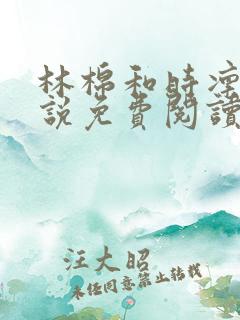 林棉和時凜
說免費閱讀
汪大昭
未经同意禁止转载